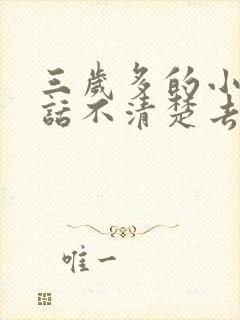 三歲多的小
話不清楚去
唯一